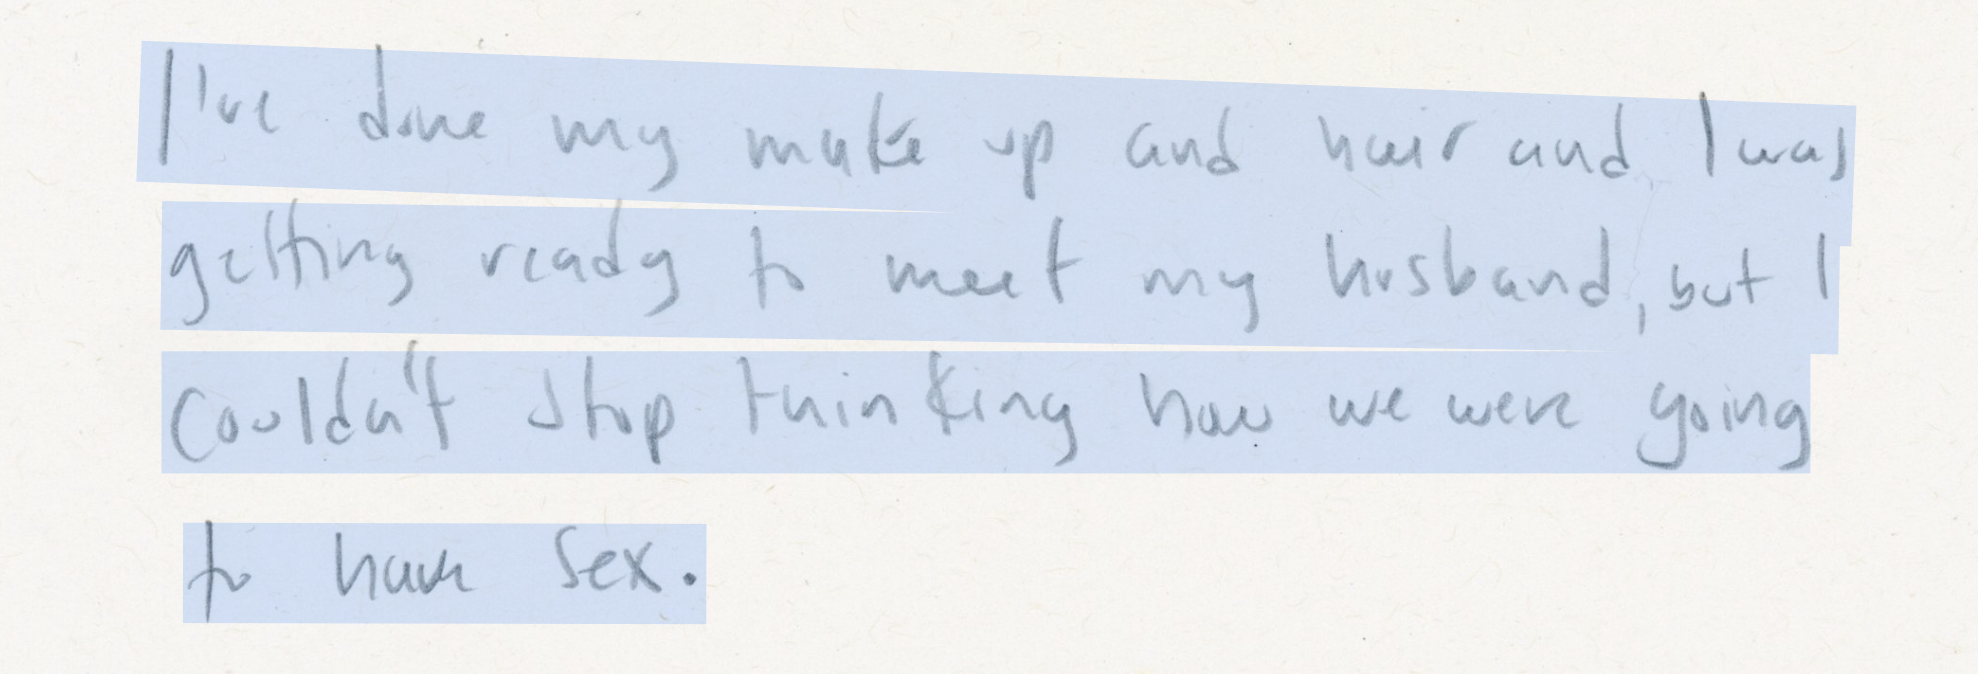 I've done my make up and hair and I was
getting ready to meet my husband, but I
couldn't stop thinking how we were going
to have sex.